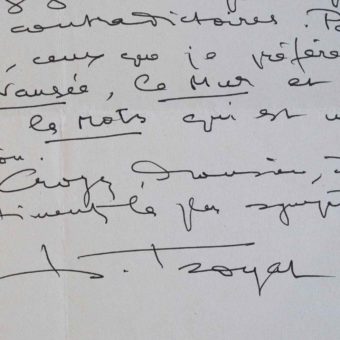 contradictoires. Pa
, ceux que je préfère
Nausée, Le Mur et
les Mots qui est u
on.
Croyez, Monsieur,
timent le plus sympa
H. Troyat